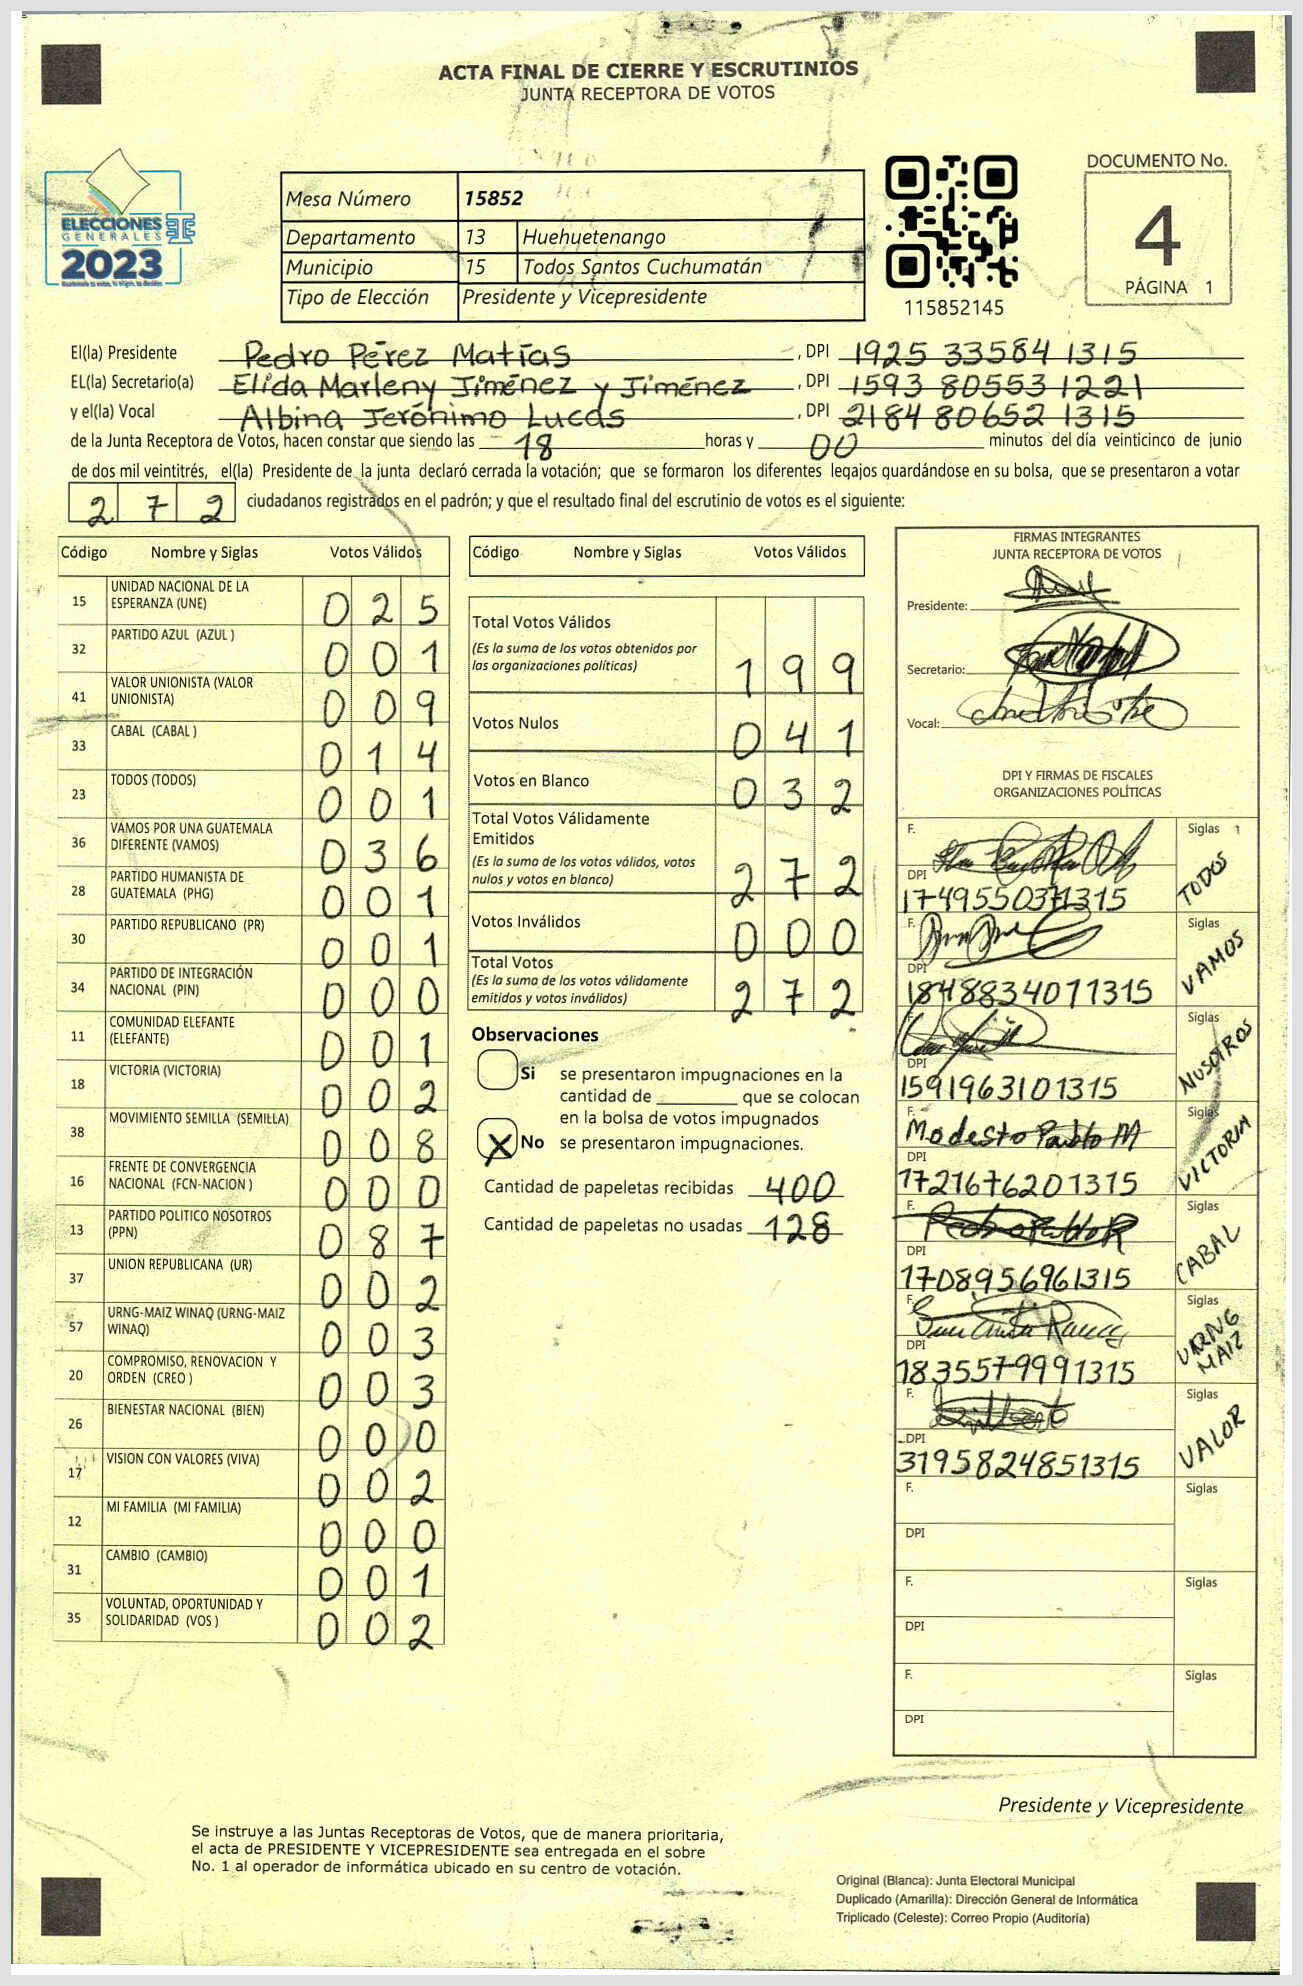 ACTA FINAL DE CIERRE Y ESCRUTINIOS
JUNTA RECEPTORA DE VOTOS
ELECCIONES
GENERALES
2023
Mesa Número 15852
Departamento 13 Huehuetenango
Municipio 15 Todos Santos Cuchumatán
Tipo de Elección Presidente y Vicepresidente
115852145
DOCUMENTO No.
4
PÁGINA 1
El(la) Presidente Pedro Pérez Matías, DPI 1925 33584 1315
EL(la) Secretario(a) Elida Marleny Jiménez y Jiménez, DPI 1593 80553 1221
y el(la) Vocal Albina Jerónimo Lucas, DPI 2184 80652 1315
de la Junta Receptora de Votos, hacen constar que siendo las 18 horas y 00 minutos del día veinticinco de junio
de dos mil veintitrés, el(la) Presidente de la junta declaró cerrada la votación; que se formaron los diferentes legajos guardándose en su bolsa, que se presentaron a votar
2 7 2 ciudadanos registrados en el padrón; y que el resultado final del escrutinio de votos es el siguiente:
Código Nombre y Siglas Votos Válidos
15 UNIDAD NACIONAL DE LA
ESPERANZA (UNE) 0 2 5
32 PARTIDO AZUL (AZUL ) 0 0 1
41 VALOR UNIONISTA (VALOR
UNIONISTA) 0 0 9
33 CABAL (CABAL ) 0 1 4
23 TODOS (TODOS) 0 0 1
36 VAMOS POR UNA GUATEMALA
DIFERENTE (VAMOS) 0 3 6
28 PARTIDO HUMANISTA DE
GUATEMALA (PHG) 0 0 1
30 PARTIDO REPUBLICANO (PR) 0 0 1
34 PARTIDO DE INTEGRACIÓN
NACIONAL (PIN) 0 0 0
11 COMUNIDAD ELEFANTE
(ELEFANTE) 0 0 1
18 VICTORIA (VICTORIA) 0 0 2
38 MOVIMIENTO SEMILLA (SEMILLA) 0 0 8
16 FRENTE DE CONVERGENCIA
NACIONAL (FCN-NACION ) 0 0 0
13 PARTIDO POLITICO NOSOTROS
(PPN) 0 8 7
37 UNION REPUBLICANA (UR) 0 0 2
57 URNG-MAIZ WINAQ (URNG-MAIZ
WINAQ) 0 0 3
20 COMPROMISO, RENOVACION Y
ORDEN (CREO ) 0 0 3
26 BIENESTAR NACIONAL (BIEN) 0 0 0
17 VISION CON VALORES (VIVA) 0 0 2
12 MI FAMILIA (MI FAMILIA) 0 0 0
31 CAMBIO (CAMBIO) 0 0 1
35 VOLUNTAD, OPORTUNIDAD Y
SOLIDARIDAD (VOS ) 0 0 2
Código Nombre y Siglas Votos Válidos
Total Votos Válidos
(Es la suma de los votos obtenidos por
las organizaciones políticas) 1 9 9
Votos Nulos 0 4 1
Votos en Blanco 0 3 2
Total Votos Válidamente
Emitidos
(Es la suma de los votos válidos, votos
nulos y votos en blanco) 2 7 2
Votos Inválidos 0 0 0
Total Votos
(Es la suma de los votos válidamente
emitidos y votos inválidos) 2 7 2
Observaciones
Si se presentaron impugnaciones en la
cantidad de ________ que se colocan
en la bolsa de votos impugnados
X No se presentaron impugnaciones.
Cantidad de papeletas recibidas 400
Cantidad de papeletas no usadas 128
FIRMAS INTEGRANTES
JUNTA RECEPTORA DE VOTOS
Presidente:
Secretario:
Vocal:
DPI Y FIRMAS DE FISCALES
ORGANIZACIONES POLÍTICAS
F. Siglas TODOS
DPI 1749550371315
F. Siglas VAMOS
DPI 1848834071315
F. Siglas NUSOTROS
DPI 1591963101315
F. Modesto Pablo M Siglas VICTORIA
DPI 1721676201315
F. Pedro Pablo R Siglas CABAL
DPI 1708956961315
F. Siglas URNG
MAIZ
DPI 1835579991315
F. Siglas VALOR
DPI 3195824851315
F. Siglas
DPI
F. Siglas
DPI
F. Siglas
DPI
Presidente y Vicepresidente
Se instruye a las Juntas Receptoras de Votos, que de manera prioritaria,
el acta de PRESIDENTE Y VICEPRESIDENTE sea entregada en el sobre
No. 1 al operador de informática ubicado en su centro de votación.
Original (Blanca): Junta Electoral Municipal
Duplicado (Amarilla): Dirección General de Informática
Triplicado (Celeste): Correo Propio (Auditoría)